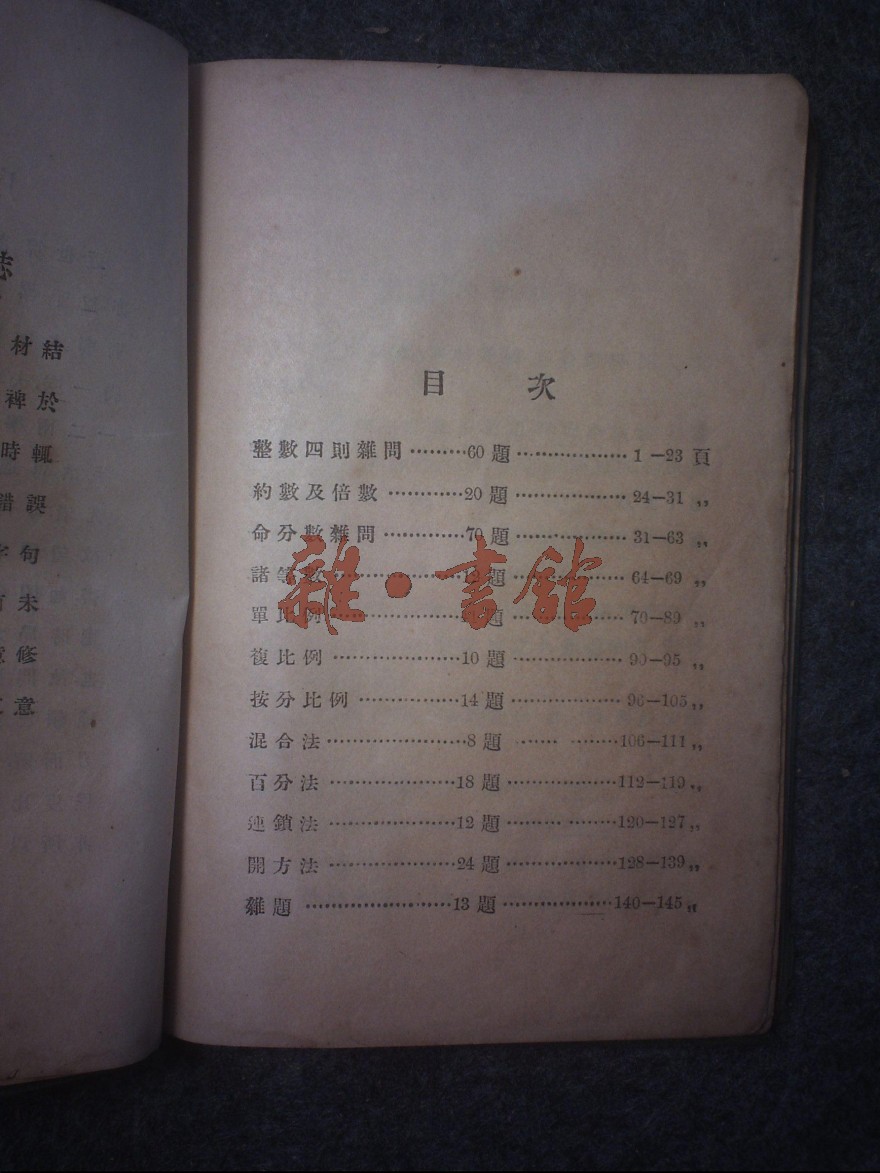 目 次
整數四則雜問………60 題………………1 —23 頁
約數及倍數…………20 題………………24—31 ,,
命分數雜問…………70 題………………31—63 ,,
諸等數…………………12 題………………64—69 ,,
單比例…………………題………………70—89 ,,
複比例…………………10 題………………90—95 ,,
按分比例……………14 題………………96—105 ,,
混合法…………………8 題…… ………106—111 ,,
百分法…………………18 題………………112—119 ,,
連鎖法…………………12 題……… ………120—127 ,,
開方法…………………24 題………………128—139 ,,
雜題……………………13 題………………140—145 ,,
雜·書館
材結
裨於
時輒
錯誤
句
未
修
意